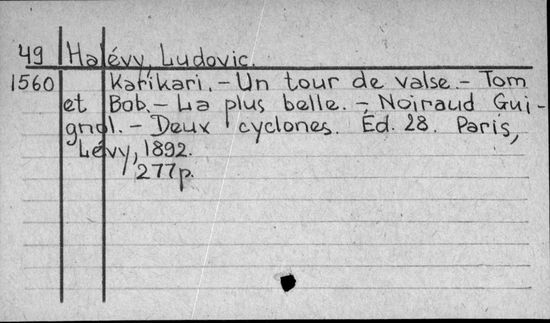 49 Halévy, Ludovic.
1560 Karikari. – Un tour de valse. – Tom
et Bob. – La plus belle. – Noiraud Gui-
gnol. – Deux cyclones. Éd. 28. Paris,
Lévy, 1892.
277p.